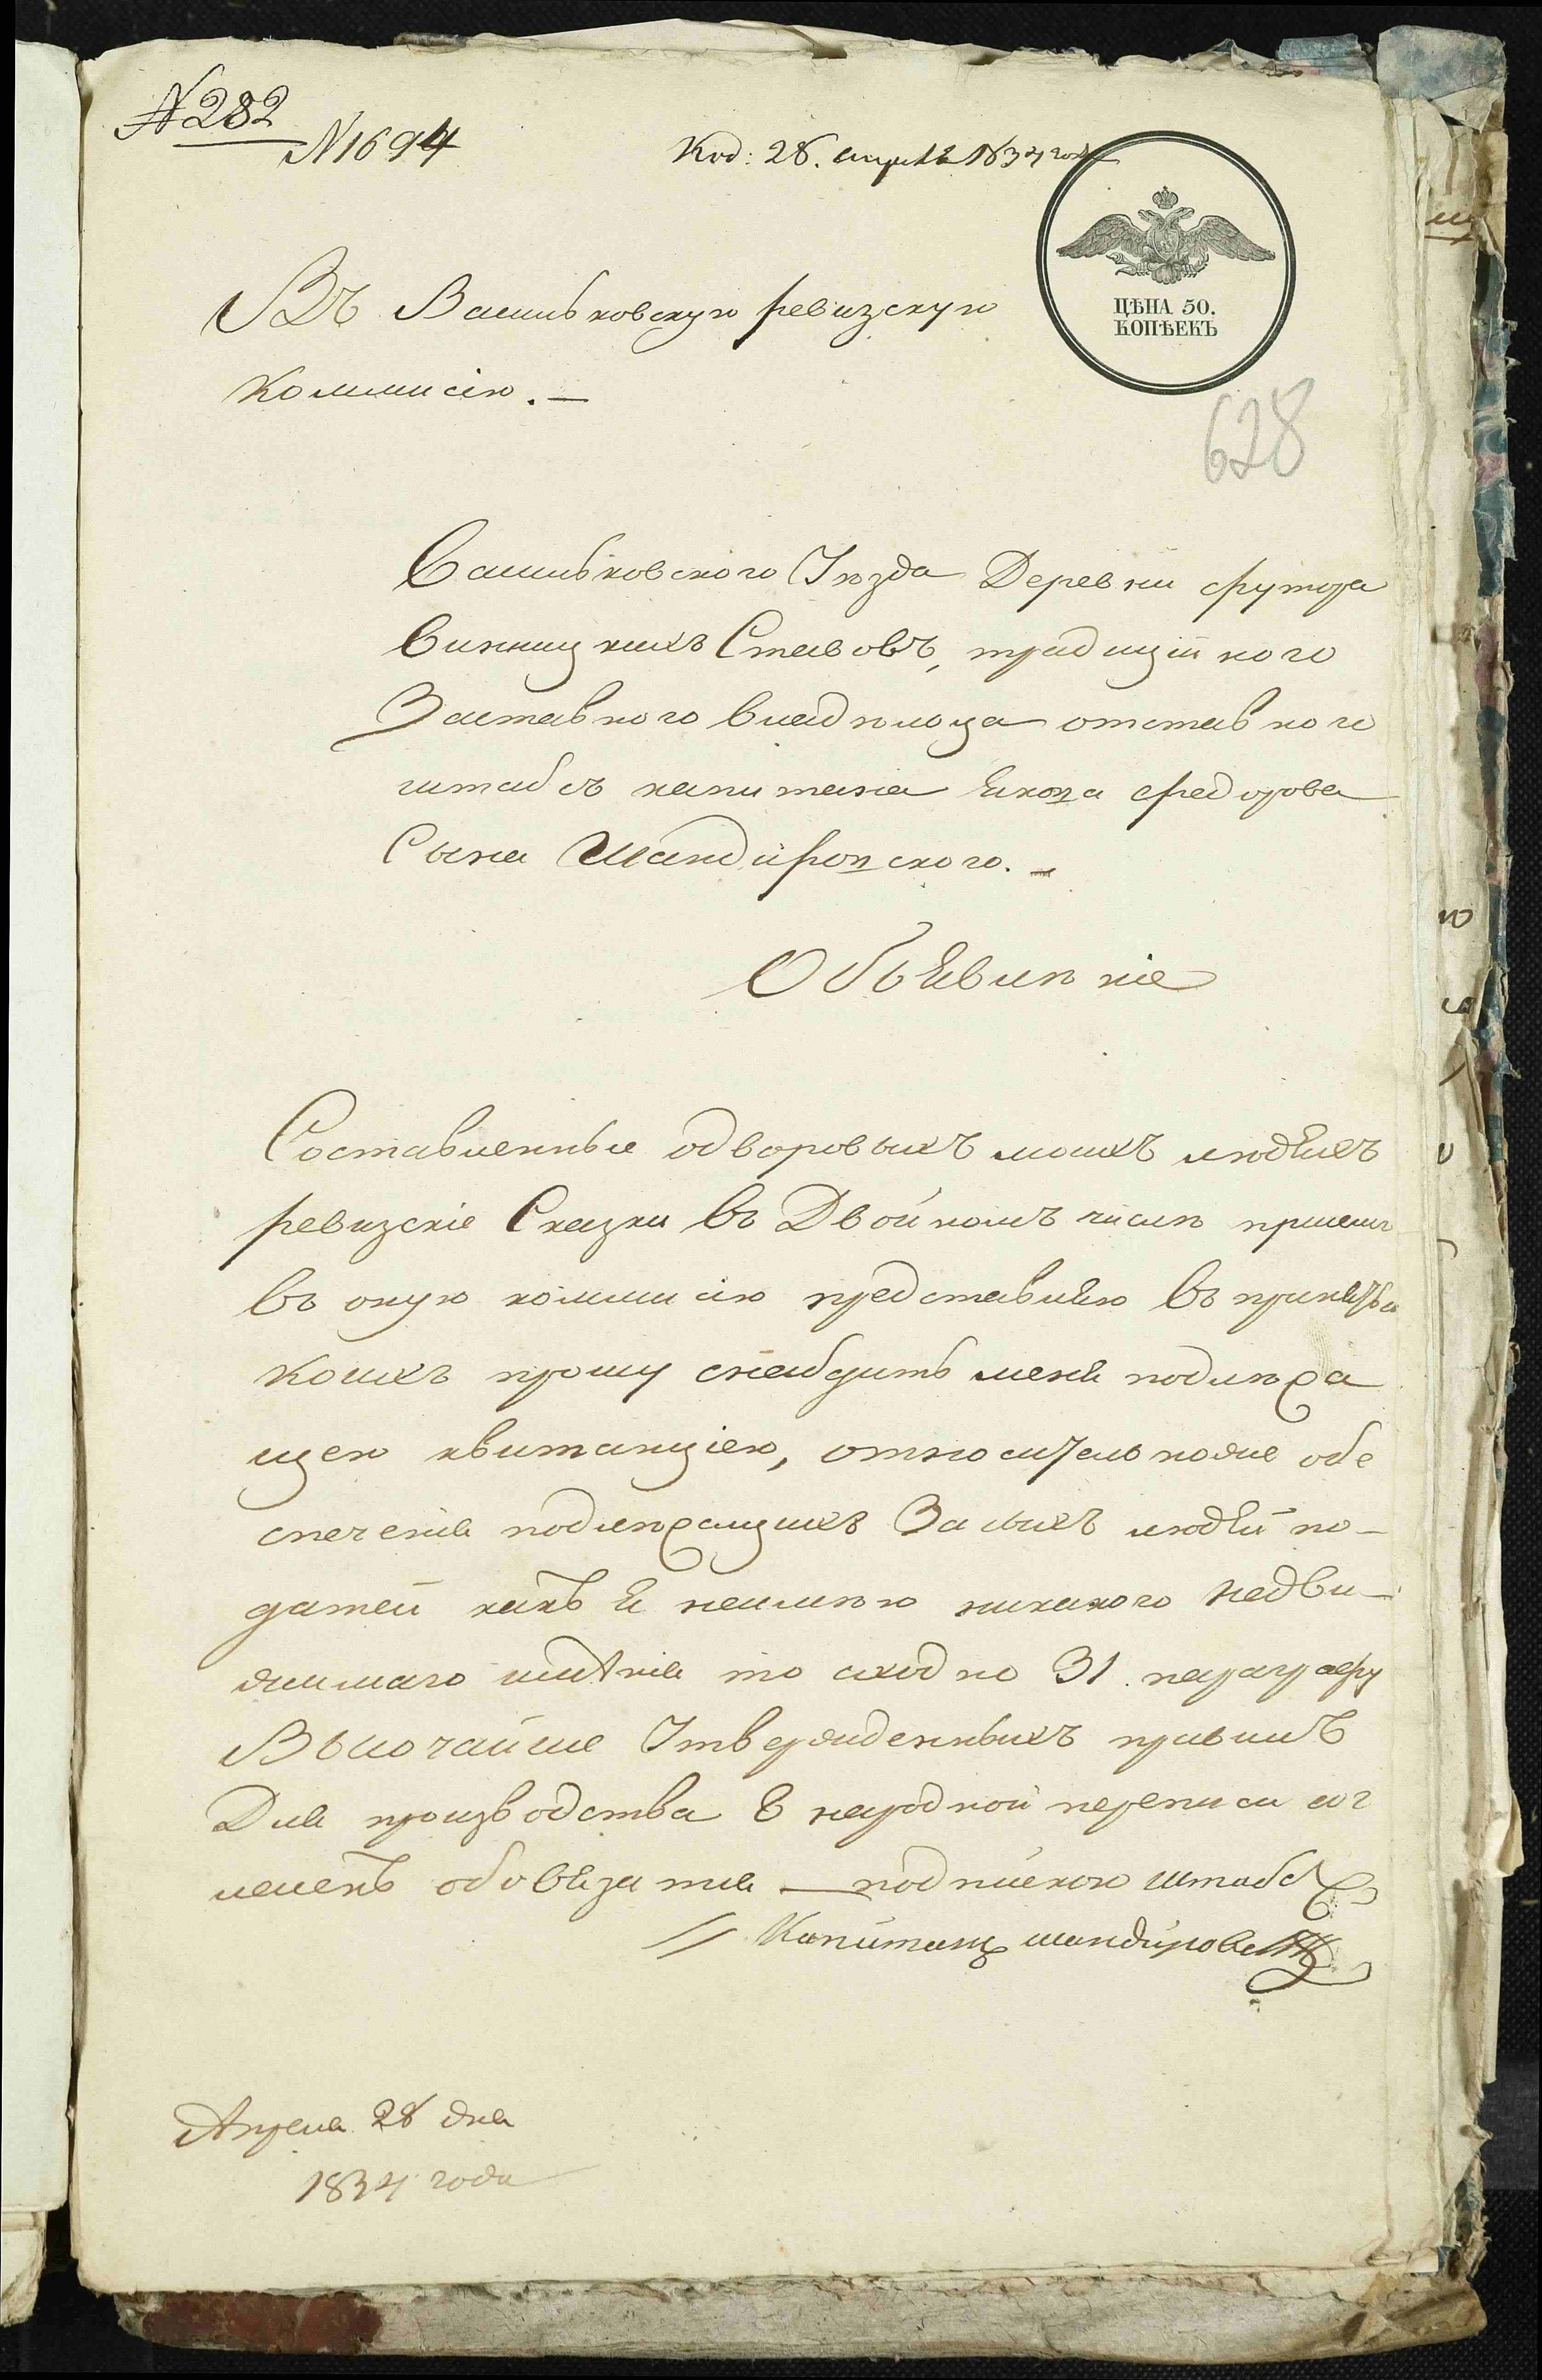 № 282
№ 1694
Под: 28. апреля 1834 года
ЦѢНА 50.
КОПѢЕКЪ
628
Въ Васильковскую ревизскую
Коммисію. —
Васильковского Уѣзда Деревни футора
Винницкихъ Ставовъ, традиційного
Заставного владѣльца отставного
штабсъ капитана Якова Федорова
Сына Шандыровского. —
Объявлѣніе
Составленные одворовыхъ моихъ людяхъ
ревизскіе Сказки въ Двойномъ числѣ при семъ
въ оную коммисію представляю въ принятьи
коихъ прошу снабдить меня подлѣжа
щею квитанціею, относительножъ обе
спеченія подлѣжащихъ За сихъ людѣй по-
датей какъ я неимѣю никакого недви-
жимаго имѣнія то сходно 31. параграфу
Высочайше Утвержденныхъ правилъ
Для производства 8 народной переписи
обовязатия — подпискою Штабсъ
Капитанъ Шандыровский
Апреля 28 дня
1834 года